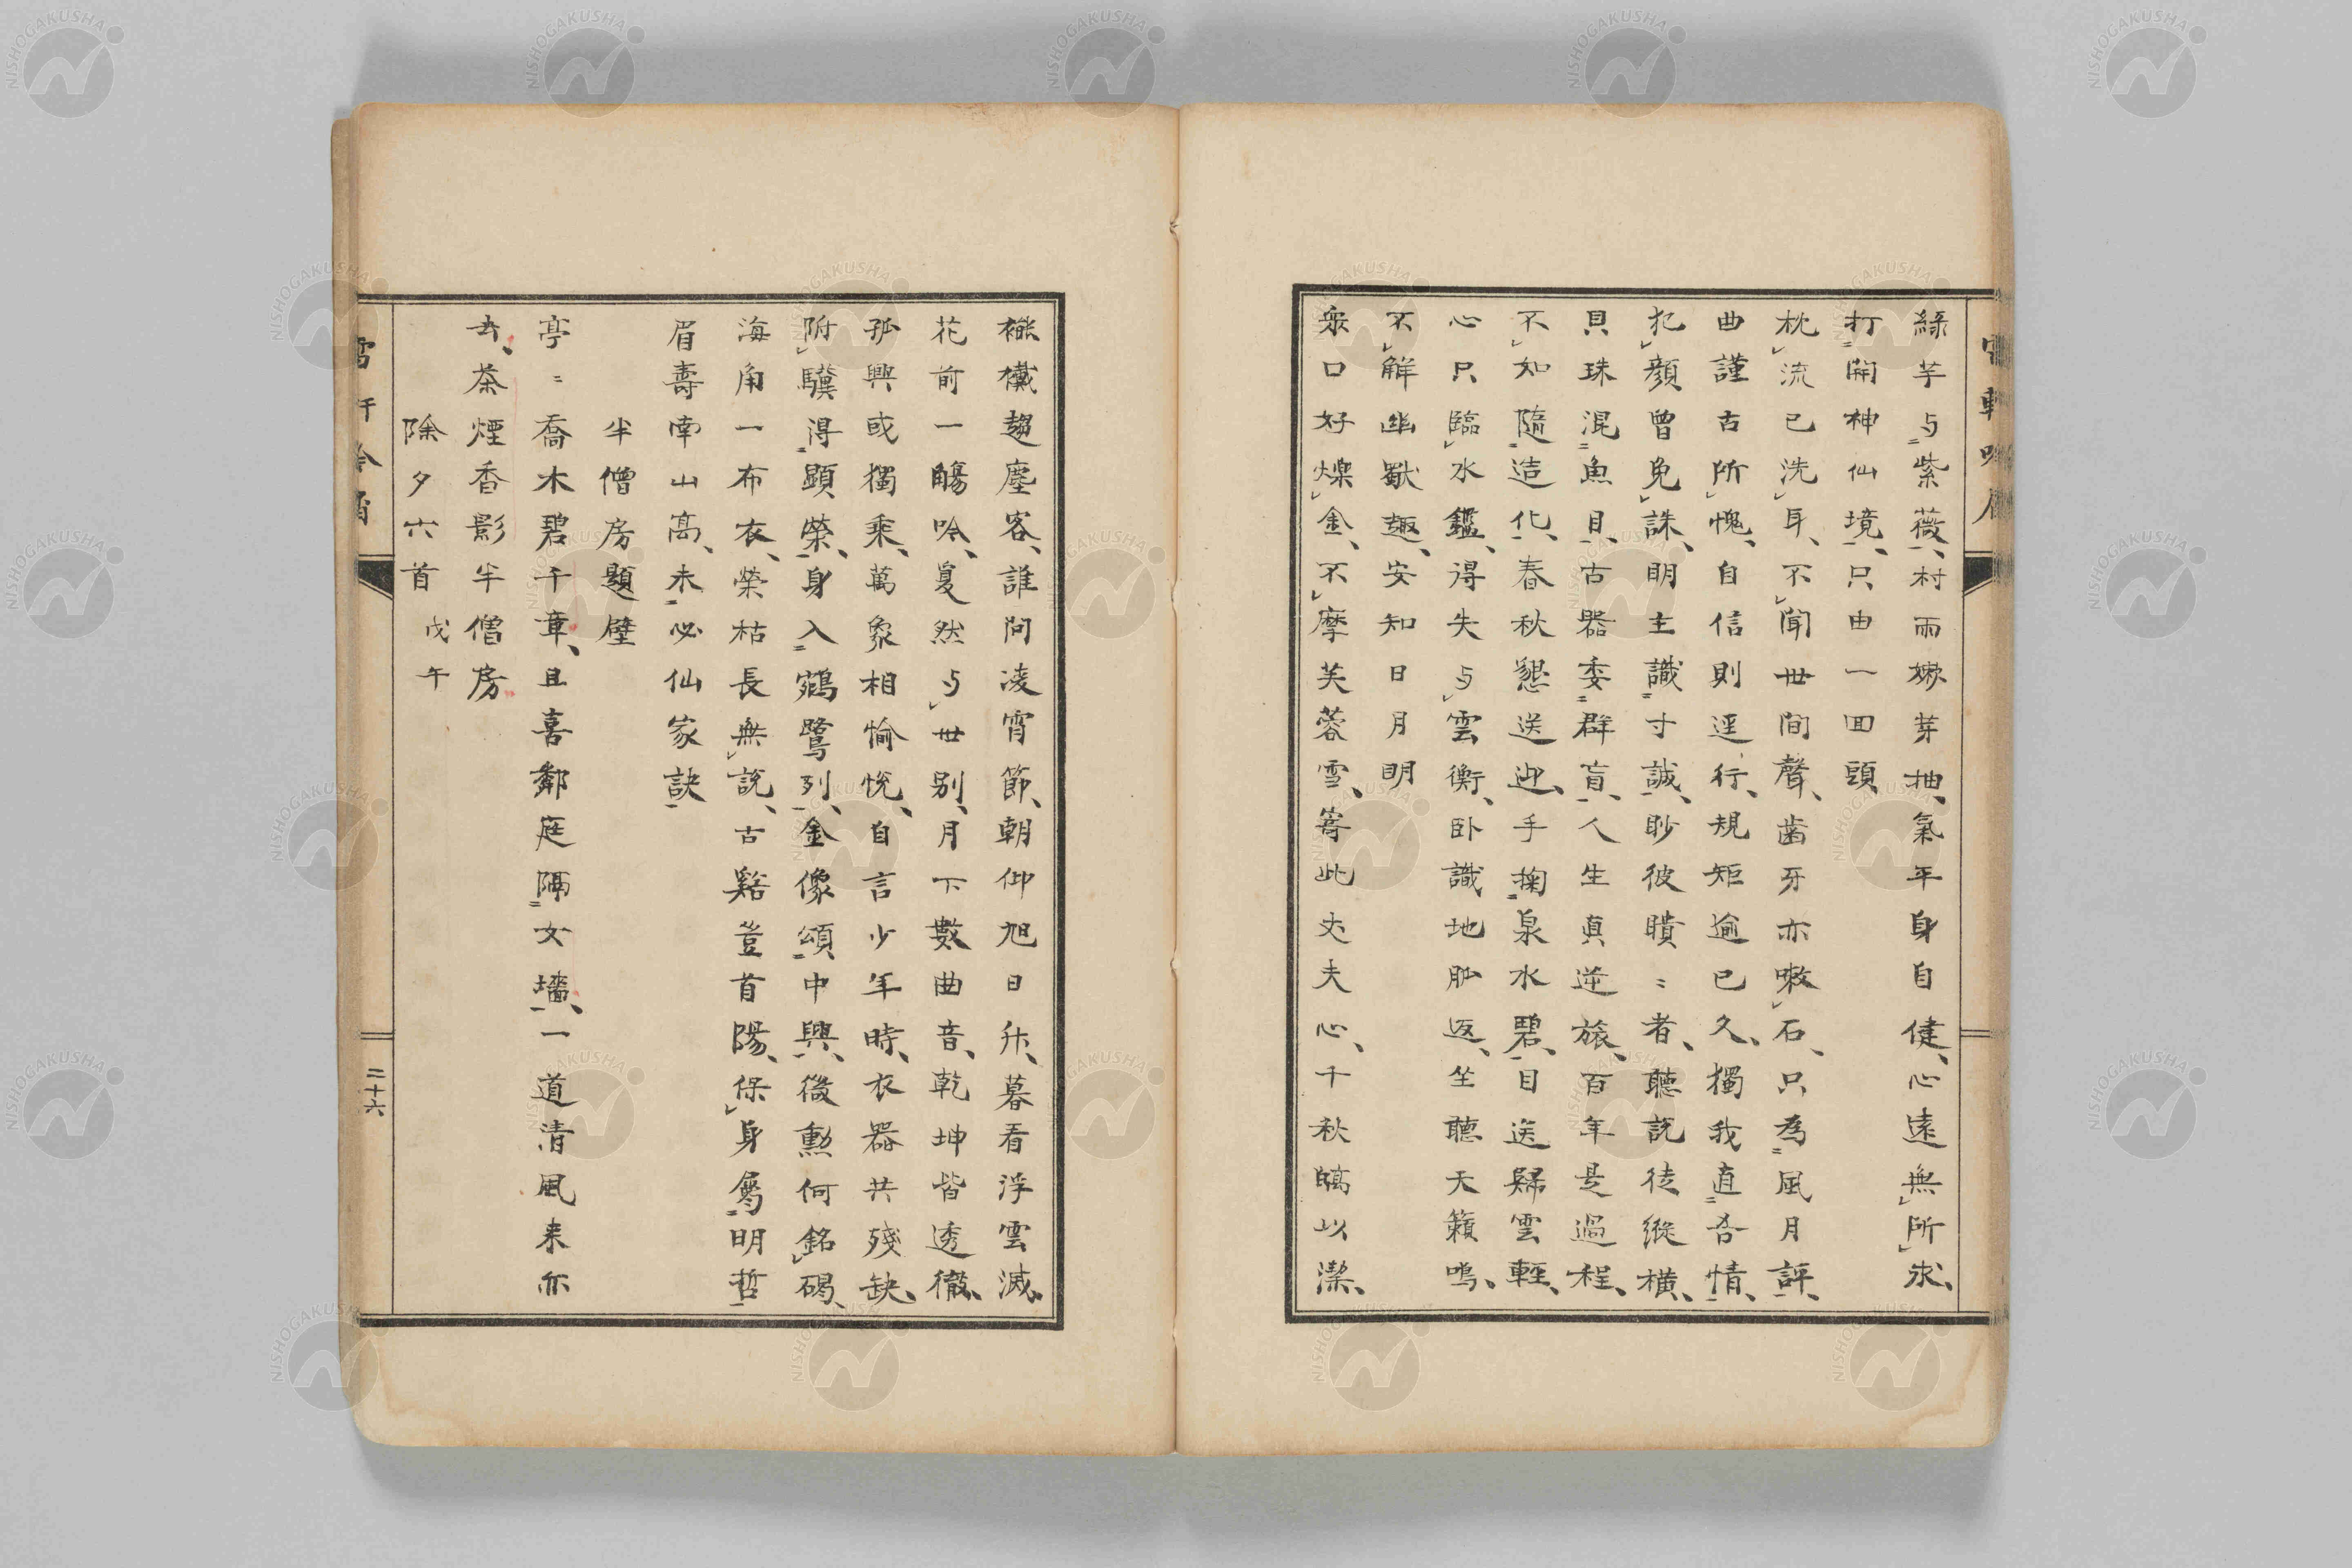 綠芋与紫薇、村雨嫩芽抽、氣年身自健、心遠無所求、
打開神仙境、只由一回頭、
枕流已洗耳、不聞世間聲、齒牙亦嗽石、只為風月評、
曲謹古所愧、自信則逕行、規矩逾已久、獨我直吾情、
犯顏曾免誅、明主識寸誠、眇彼瞶〻者、聽說徒縱橫、
貝珠混魚目、古器委群盲、人生真逆旅、百年是過程、
不如隨造化、春秋懇送迎、手掬泉水碧、目送歸雲輕、
心只臨水鑑、得失与雲衡、卧識地胍返、坐聽天籟鳴、
不解幽獸趣、安知日月明
衆口好爍金、不摩芙蓉雪、嵜此丈夫心、千秋皜以潔、
襏襶趨塵客、誰問凌霄節、朝仰旭日升、暮看浮雲滅、
花前一觴吟、夐然与世別、月下數曲音、乾坤皆透徹、
孤興或獨乘、萬象相愉悅、自言少年時、衣器共殘缺、
附驥得顯榮、身入鵷鷺列、金像頌中興、徽勳何銘碣、
海角一布衣、榮枯長無說、古谿豈首陽、保身屬明哲
眉壽南山高、未必仙家訣
半僧房題壁
亭〻喬木碧千章、且喜鄰庭隔女墻、一道清風来亦
去、茶煙香影半僧房
除夕六首 戊午
二十六
NISHOGAKUSHA